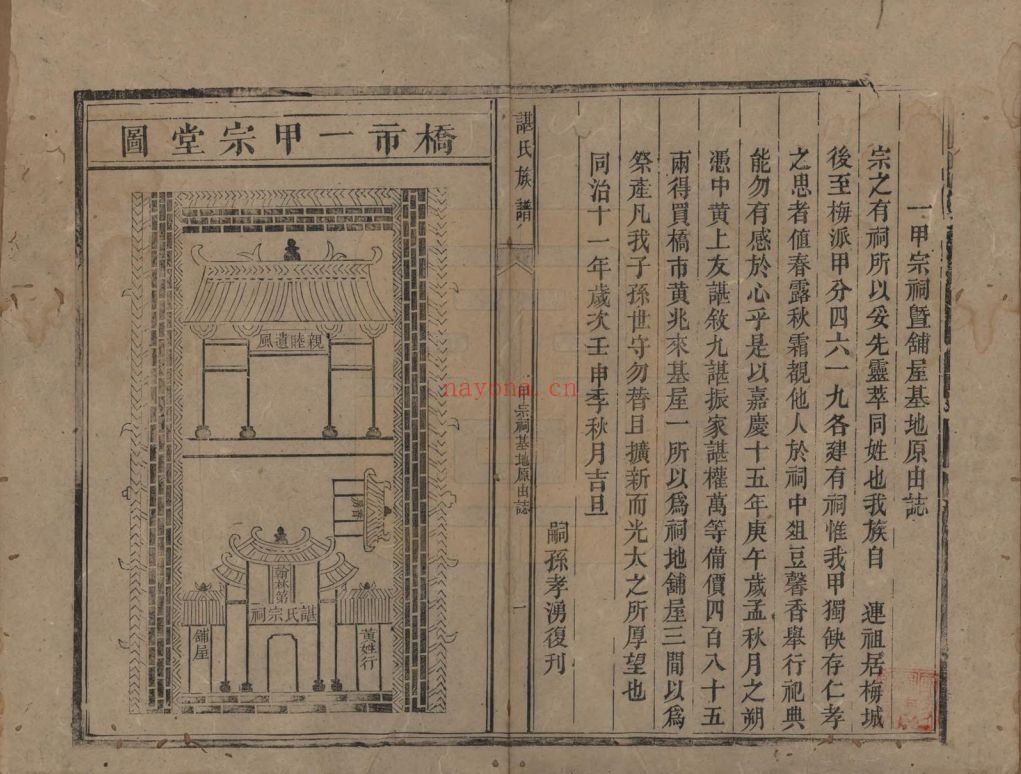 一甲宗祠暨舖屋基地原由誌
宗之有祠所以妥先靈萃同姓也我族自　連祖居梅城
後至梅派甲分四六一九各建有祠惟我甲獨缺存仁孝
之思者值春露秋霜覩他人於祠中俎豆馨香舉行祀典
能勿有感於心乎是以嘉慶十五年庚午歲孟秋月之朔
憑中黃上友諶敘九諶振家諶權萬等備價四百八十五
兩得買橋市黃兆來基屋一所以爲祠地舖屋三間以爲
祭產凡我子孫世守勿替且擴新而光大之所厚望也
同治十一年歲次壬申季秋月吉旦
嗣孫孝湧復刊
諶氏族譜
一甲宗祠基地原由誌
一
橋市一甲宗堂圖
親睦遺風
翰林第
諶氏宗祠
黃姓行
舖屋
nayona.cn